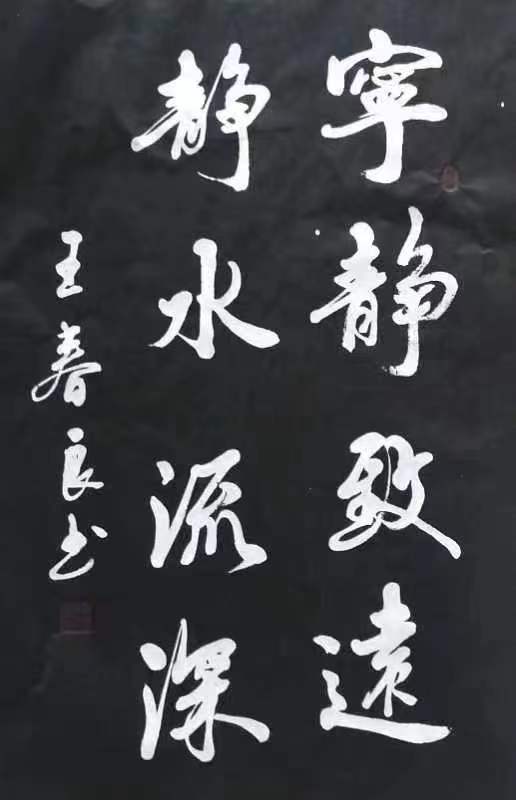 寧静致遠
静水流深
王春良书